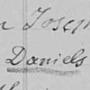 Joseph
Daniels